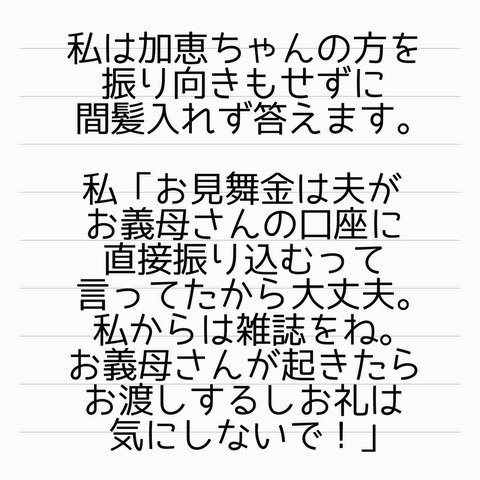 私は加恵ちゃんの方を
振り向きもせずに
間髪入れず答えます。
私「お見舞金は夫が
お義母さんの口座に
直接振り込むって
言ってたから大丈夫。
私からは雑誌をね。
お義母さんが起きたら
お渡しするしお礼は
気にしないで！」